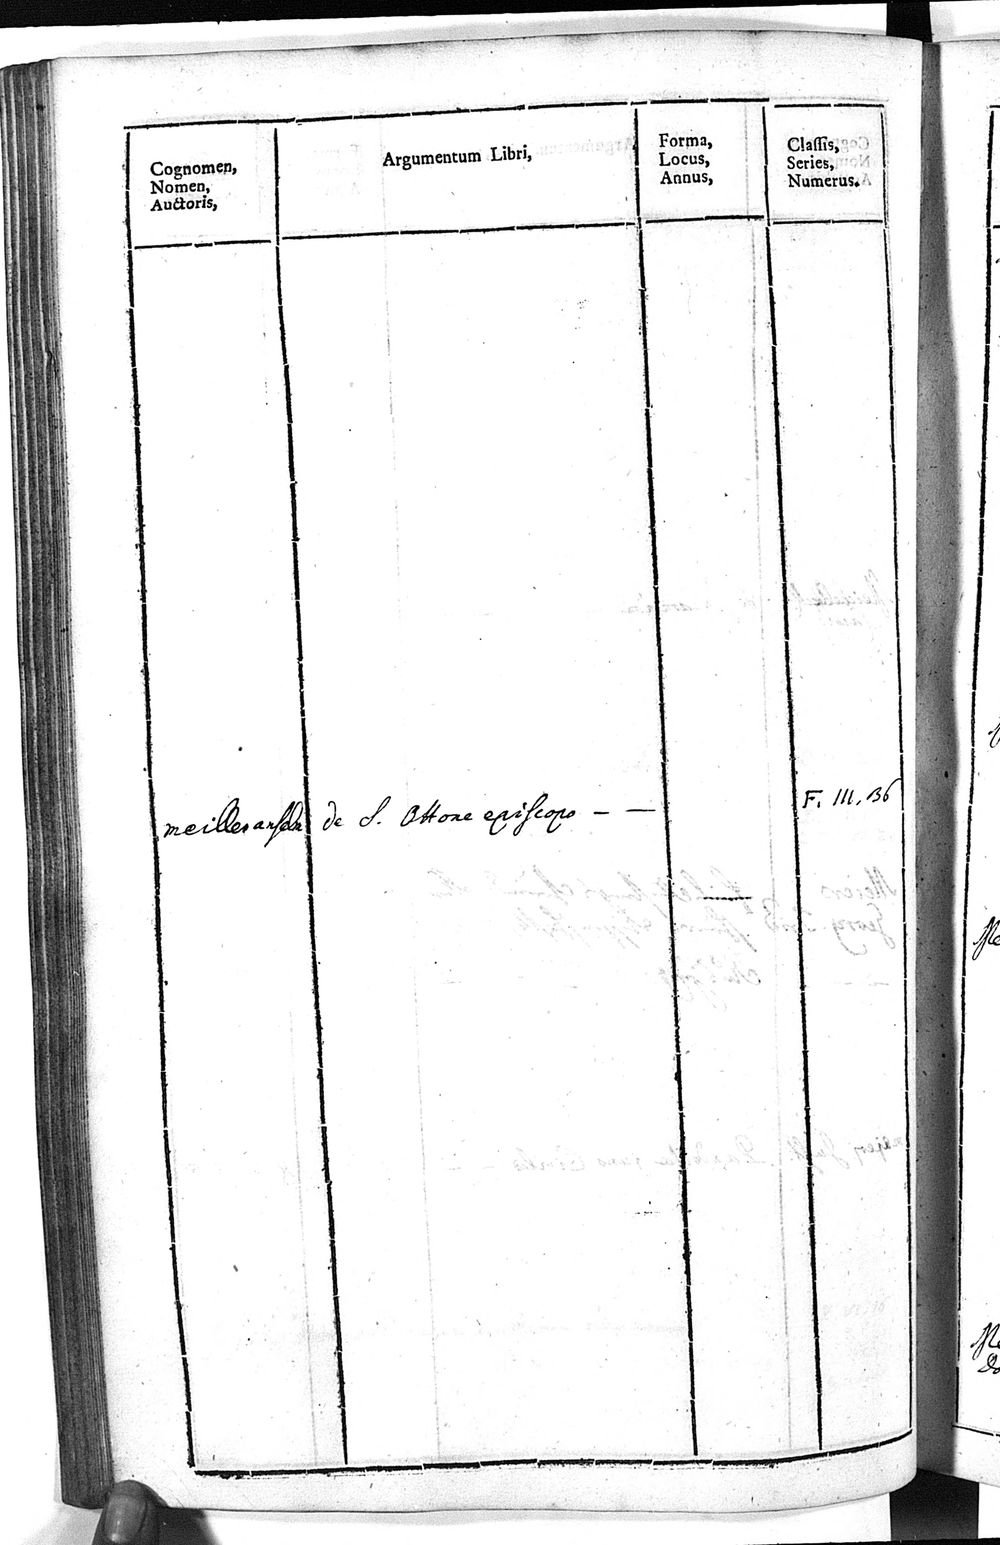 Cognomen,
Nomen,
Auctoris,
Argumentum Libri,
Forma,
Locus,
Annus,
Classis,
Series,
Numerus.
de S. Ottone episcopo – —
F. III. 136